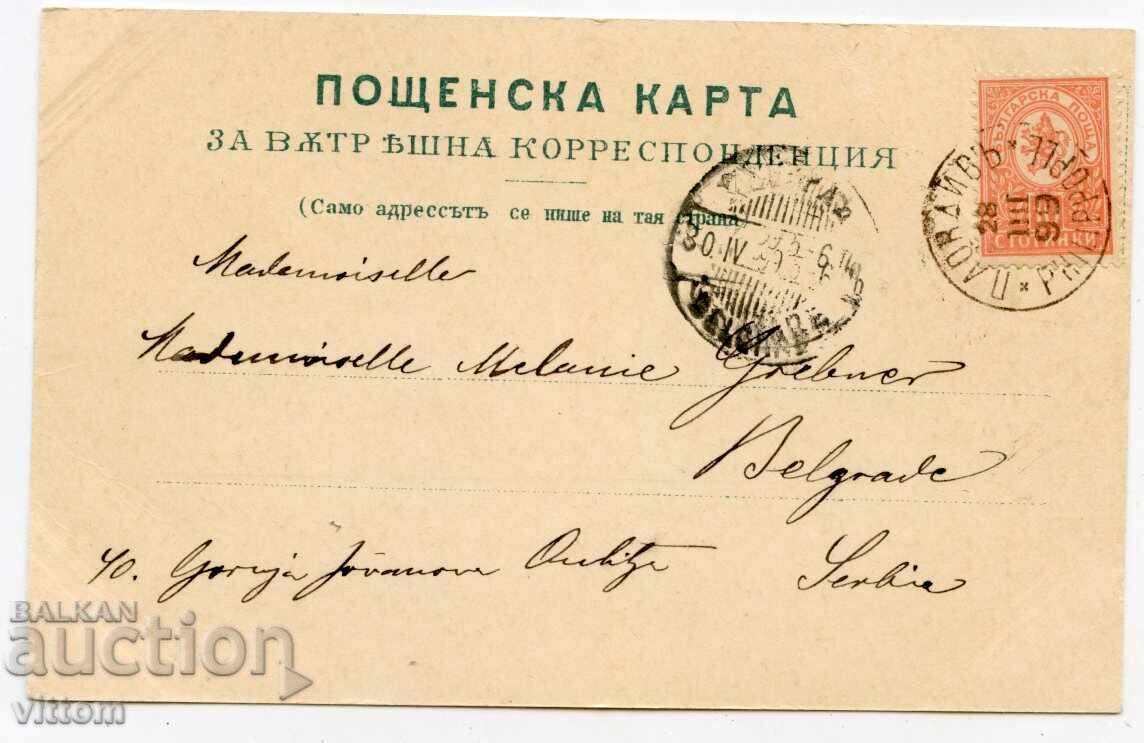 ПОЩЕНСКА КАРТА
ЗА ВѪТРѢШНА КОРРЕСПОНДЕНЦИЯ
(Само адрессътъ се пише на тая страна)
БЪЛГАРСКА ПОЩА
СТОТИНКИ
ПЛОВДИВЪ
28
III
99
30. IV 99. 3-6
Mademoiselle
Mademoiselle Melanie Grebner
Belgrade
40. Gornja Jovanova Oulitza Serbie
BALKAN
auction
vittom